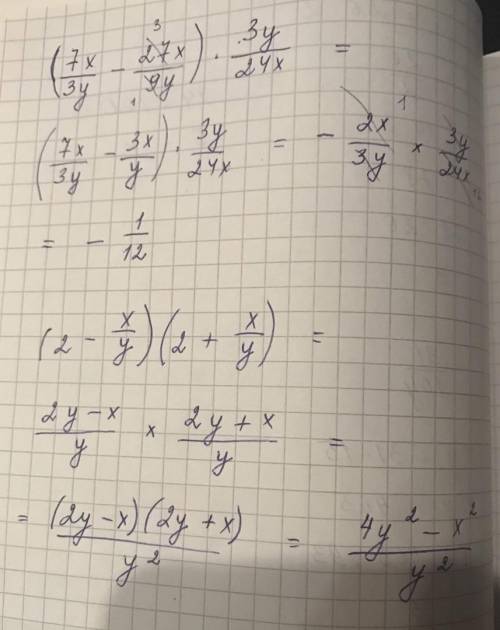 (7x/3y - 27x/9y) · 3y/24x =
3 1
(7x/3y - 3x/y) · 3y/24x = - 2x/3y × 3y/24x
1
= - 1/12
(2 - x/y)(2 + x/y) =
2y-x/y × 2y+x/y =
= (2y-x)(2y+x)/y² = 4y²-x²/y²